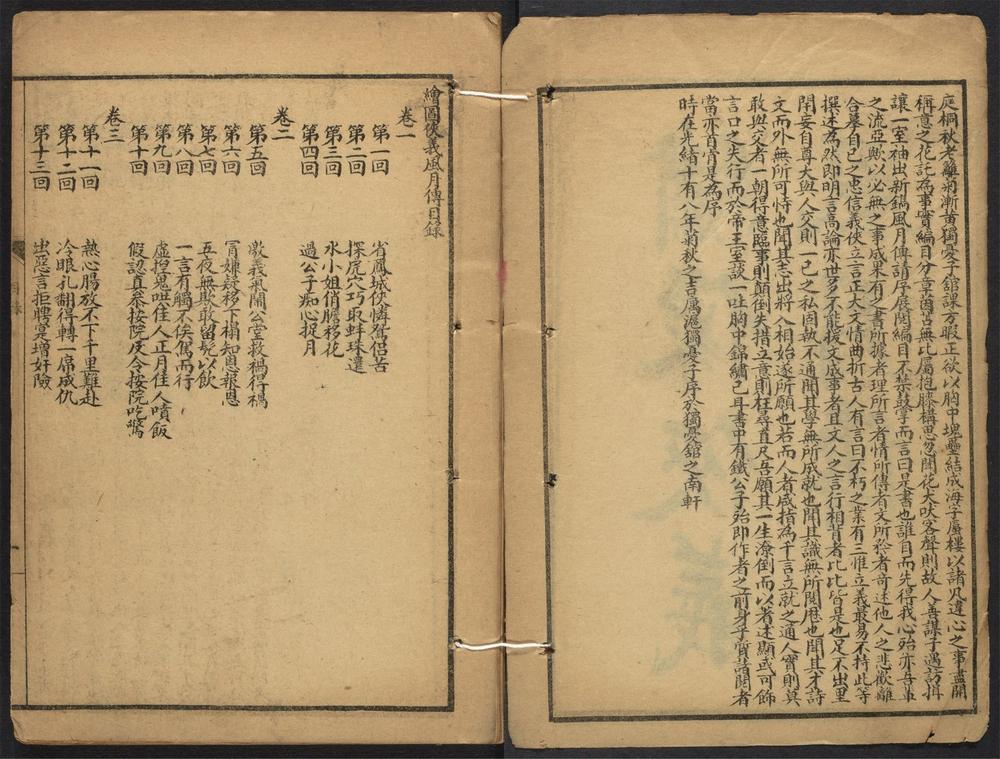 庭桐秋老籬菊漸黃獨憂子舘課方暇正欲以胸中塊壘結成海字蜃樓以諸凡違心之事盡開
稱意之花託為事實編目分章茵苦無比屬抱膝構思忽聞花犬吠客聲則故人善謀子過訪揖
讓一室袖出新鐫風月傳請序展閱編目不禁鼓掌而言曰是書也誰目而先得我心殆亦吾輩
之流亞歟以必無之事成果有之書所據者理所言者情所傳者文所矜者奇述他人之悲歡離
合摹自己之忠信義俠立言正大文情曲折古人有言曰不朽之業有三惟立義最易不持此等
撰述為然即明言高論亦世多不能援文成事者且文人之言行相背者比比皆是也足不出里
閈妄自尊大與人交則一己之私固執不通聞其學無所成就也聞其識無所閱歷也聞其才詩
文而外無所可恃也聞其志出將入相始遂所願也若而人者咸指為千言立就之通人實則莫
敢與交者一朝得意臨事則顛倒失措立意則枉尋直尺吾願其一生潦倒而以著述顯或可飾
言口之失行而於帝王室談一吐胸中錦繡已耳書中有鐵公子殆即作者之前身乎質諸閱者
當亦首肯是為序
時在光緒十有八年菊秋之吉属滬獨憂子序於獨憂舘之南軒
繪圖俠義風月傳目錄
卷一
第一回 省鳳城俠憐鴛侶苦
第二回 探虎穴巧取蚌珠還
第三回 水小姐俏膽移花
第四回 過公子痴心捉月
卷二
第五回 激義氣鬧公堂救禍得禍
第六回 冐嫌疑移下榻知恩報恩
第七回 五夜無欺敢留髡以飲
第八回 一言有觸不俟駕而行
第九回 虛捏鬼哄佳人正月佳人噴飯
第十回 假認真參按院反令按院吃驚
卷三
第十一回 熱心腸放不下千里難赴
第十二回 冷眼孔翻得轉一席成仇
第十三回 出惡言拒聘寔增奸險